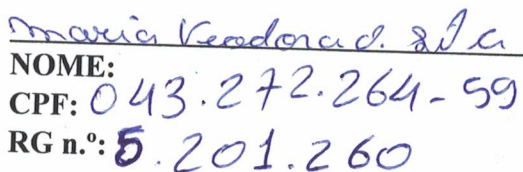 Maria Veodora d. Silva
NOME:
CPF: 043.272.264-59
RG n.º: 5.201.260